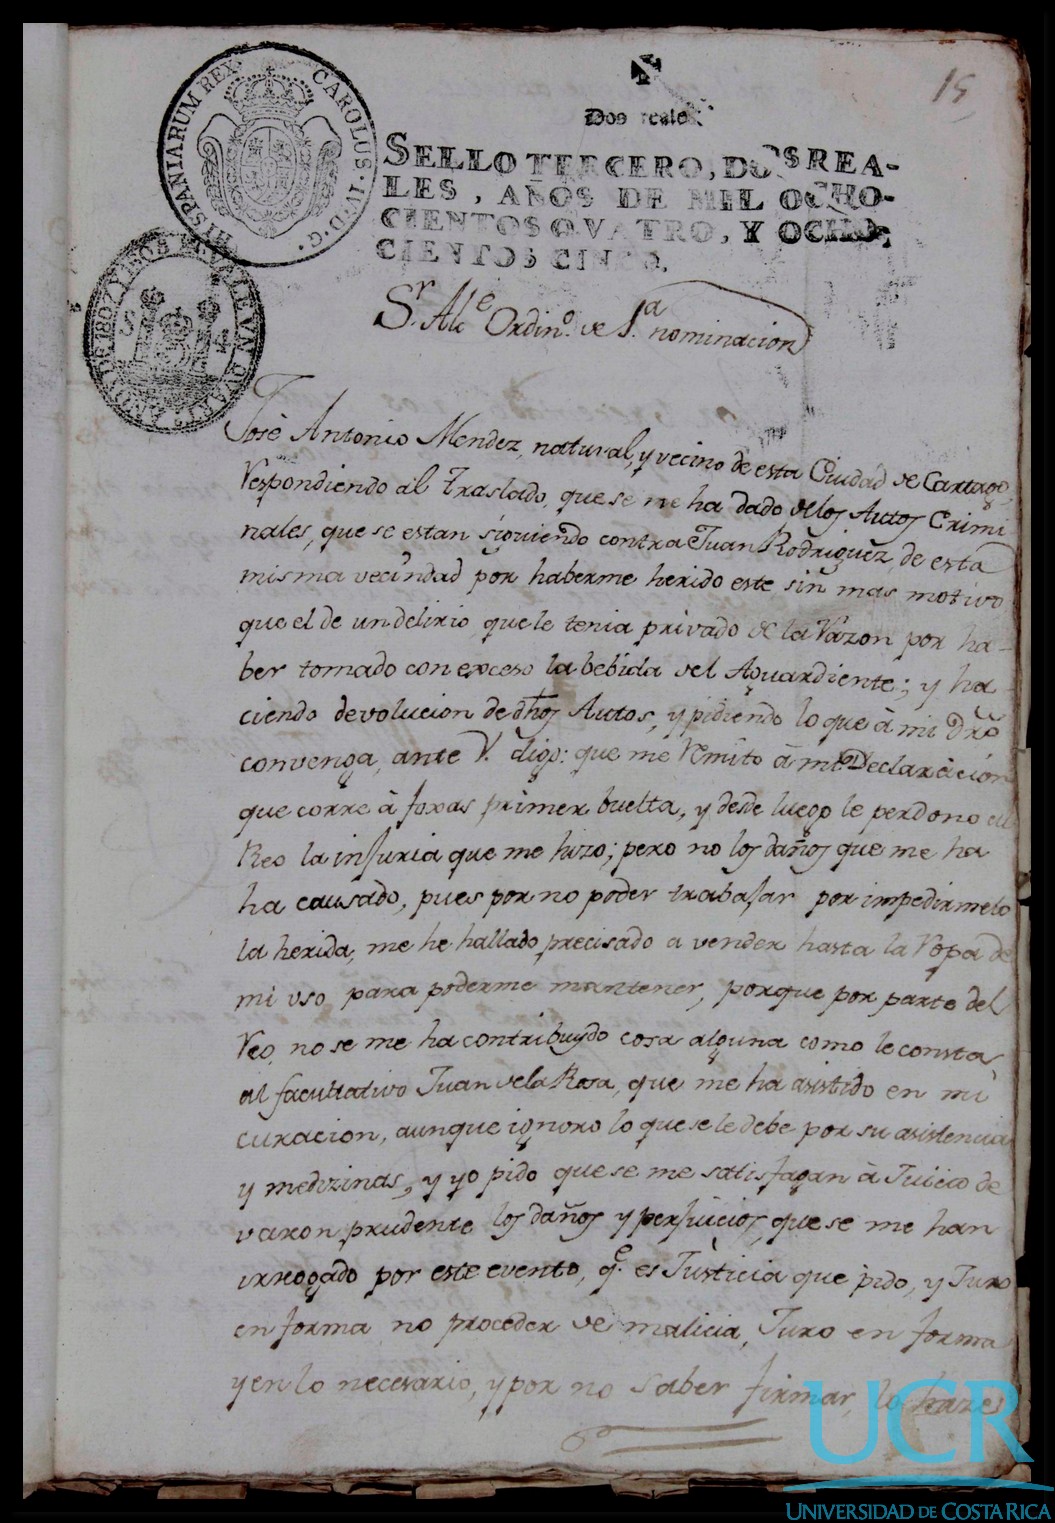 15
HISPANIARUM REX. CAROLUS · IV · D · G ·
Dos reales
SELLO TERCERO, DOS REA-
LES, AÑOS DE MIL OCHO-
CIENTOS QVATRO, Y OCHO-
CIENTOS CINCO.
Sr. Alce Ordino. de 1.a nominacion
Josè Antonio Mendez, natural, y vecino de esta Ciudad de Cartago,
Respondiendo al traslado, que se me ha dado de los Autos Crimi
nales, que se estan siguiendo contra Juan Rodriguez, de esta
misma vecindad por haberme herido este sin mas motivo
que el de un delirio que le tenia privado de la Razon por ha-
ber tomado con exceso la bebida del Aguardiente; y ha
ciendo devolucion de dhos Autos, y pidiendo lo que à mi Dro
convenga, ante V. digo: que me Remito à mi Declaración
que corre à foxas primer buelta, y desde luego le perdono al
Reo la injuria que me hizo; pero no los daños que me ha
ha causado, pues por no poder trabajar por impedirmelo
la herida, me he hallado precisado a vender hasta la Ropa de
mi uso para poderme mantener, porque por parte del
Reo, no se me ha contribuydo cosa alguna como le consta
al facultativo Juan de la Rosa, que me ha asistido en mi
curacion, aunque ignoro lo que se le debe por su asistencia
y medizinas, y yo pido que se me satisfagan à Juicio de
varon prudente los daños y perjuicios, que se me han
irrogado por este evento, q.e es Justicia que pido, y Juro
en forma no proceder de malicia, Juro en forma
y en lo necesario, y por no saber firmar, lo haze
UCR
UNIVERSIDAD DE COSTA RICA